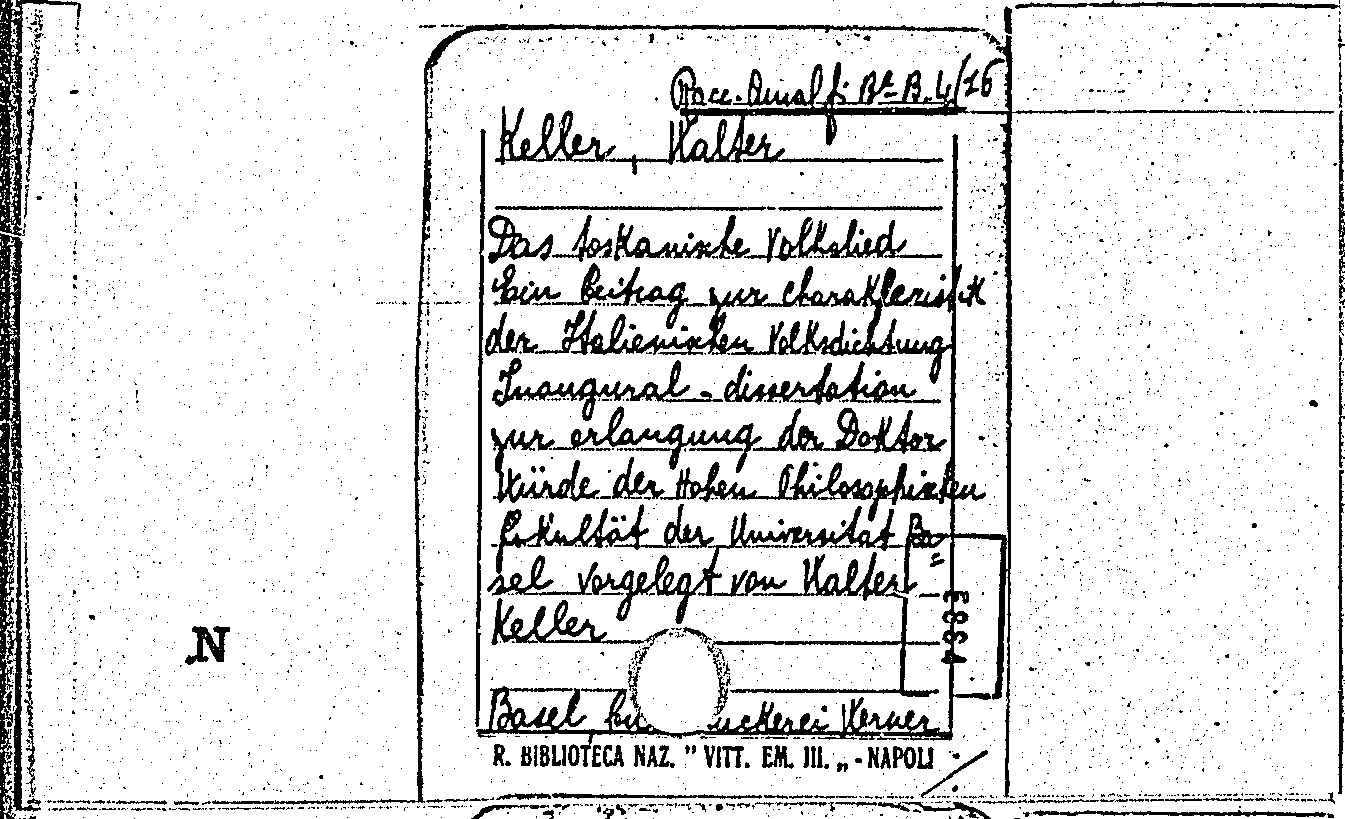 Racc. Amalfi Bª B. 4/16
Keller, Walter
Das toskanische Volkslied
Ein Beitrag zur charakteristik
der Italienischen Volksdichtung
Inaugural - dissertation
zur erlangung der Doktor
Würde der Hohen Philosophischen
Fakultät der Universitat Ba=
sel vorgelegt von Walter
Keller
E8884
.N
Basel, Bu uckerei Werner
R. BIBLIOTECA NAZ. " VITT. EM. III. „ - NAPOLI